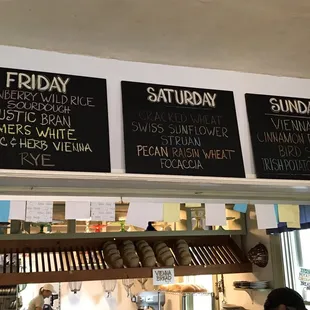 FRIDAY
WILD RICE
SOURDOUGH
RUSTIC BRAN
WHITE
& HERB VIENNA
RYE
SATURDAY
CRACKED WHEAT
SWISS SUNFLOWER
STRUAN
PECAN RAISIN WHEAT
FOCACCIA
SUND
VIENNA
CINNAMON
BIRD
IRISH POTATO
VIENNA